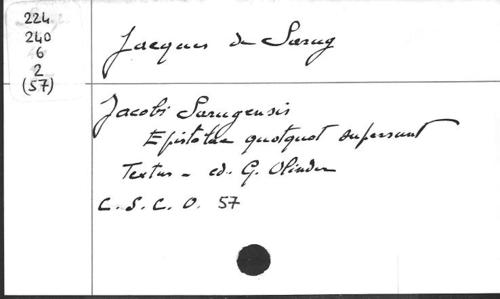 224
240
6
2
(57)
Jacques de Sarug
Jacobi Sarugensis
Epistolae quotquot supersunt
Textus - ed. G. Olinder
C. S. C. O. 57